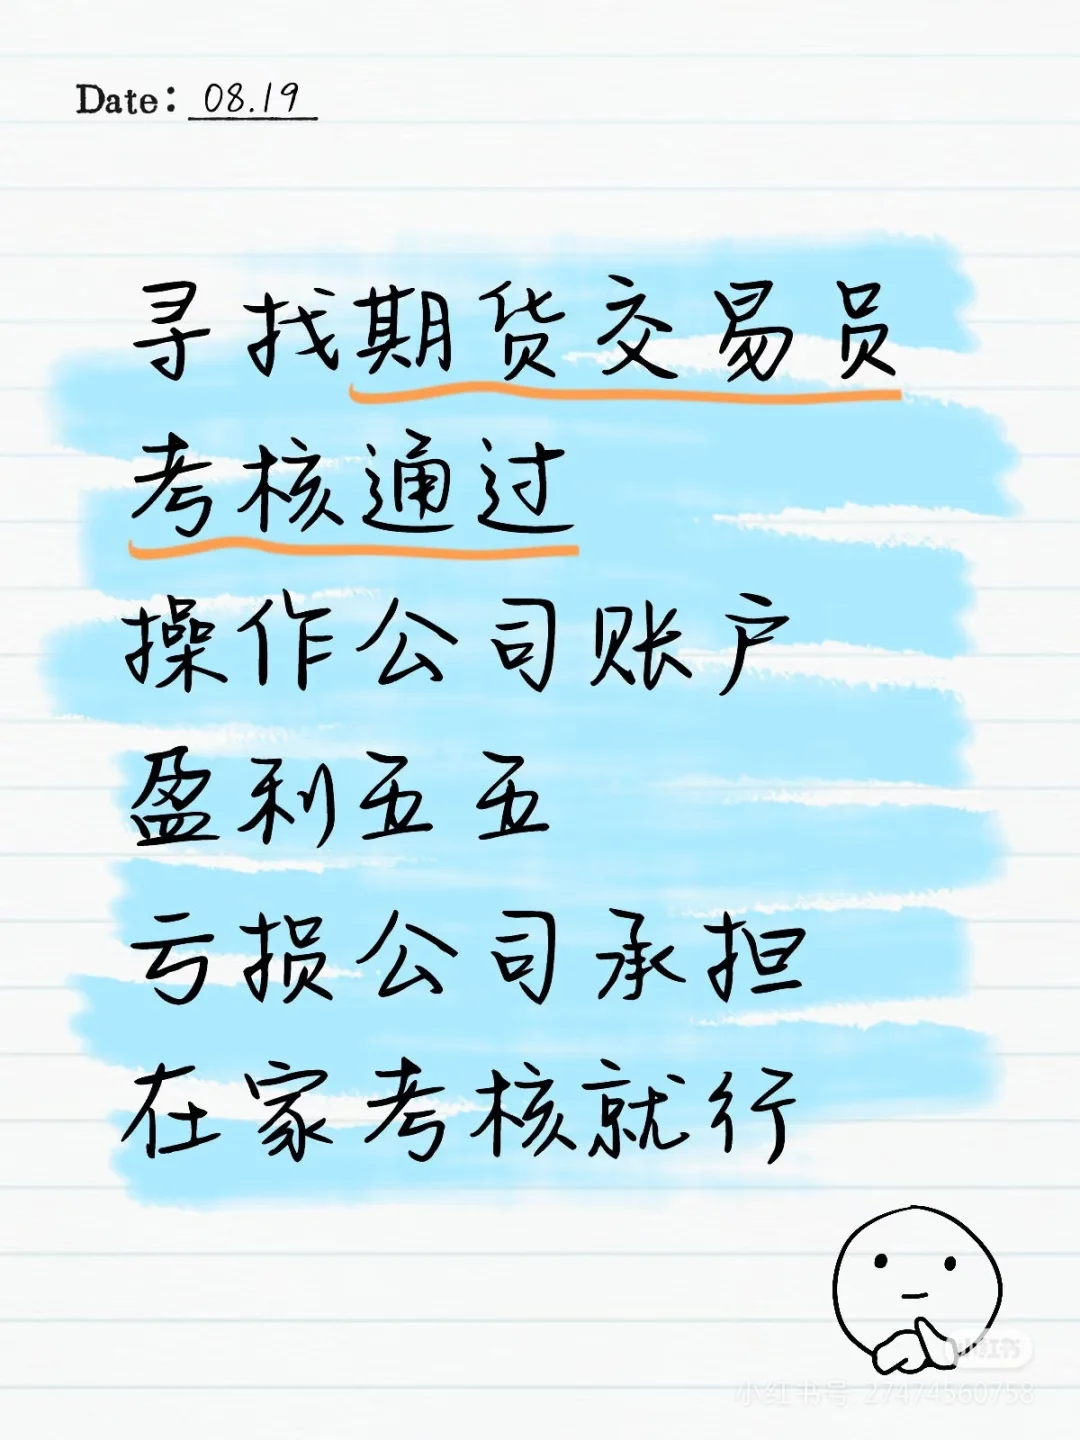 Date: 08.19
寻找期货交易员
考核通过
操作公司账户
盈利五五
亏损公司承担
在家考核就行
小红书
小红书号 27474560758